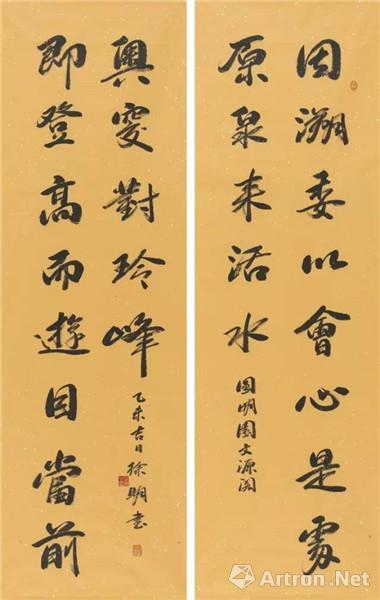 因溯委以會心是處
原泉来活水
圓明園文源閣
即登高而遊目當前
奥窔對玲峰
乙未吉日徐明書
Artron.Net